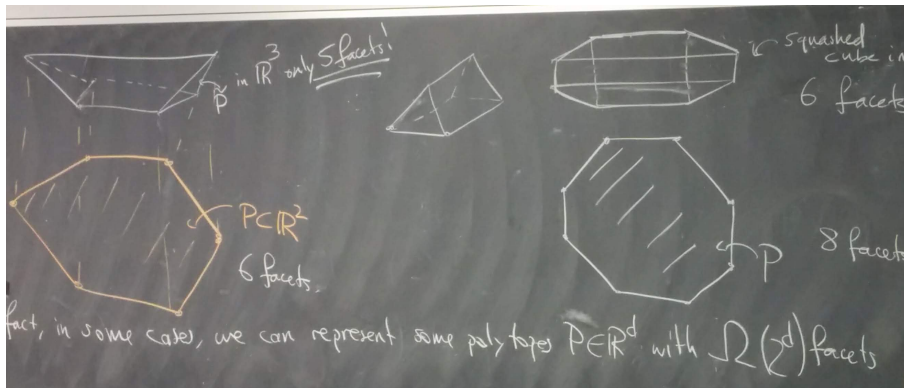 P̃ in ℝ³ only 5 facets!
squashed
cube in
6 facets
P⊂ℝ²
6 facets.
P
8 facets
fact, in some cases, we can represent some polytopes P∈ℝᵈ with Ω(2ᵈ) facets